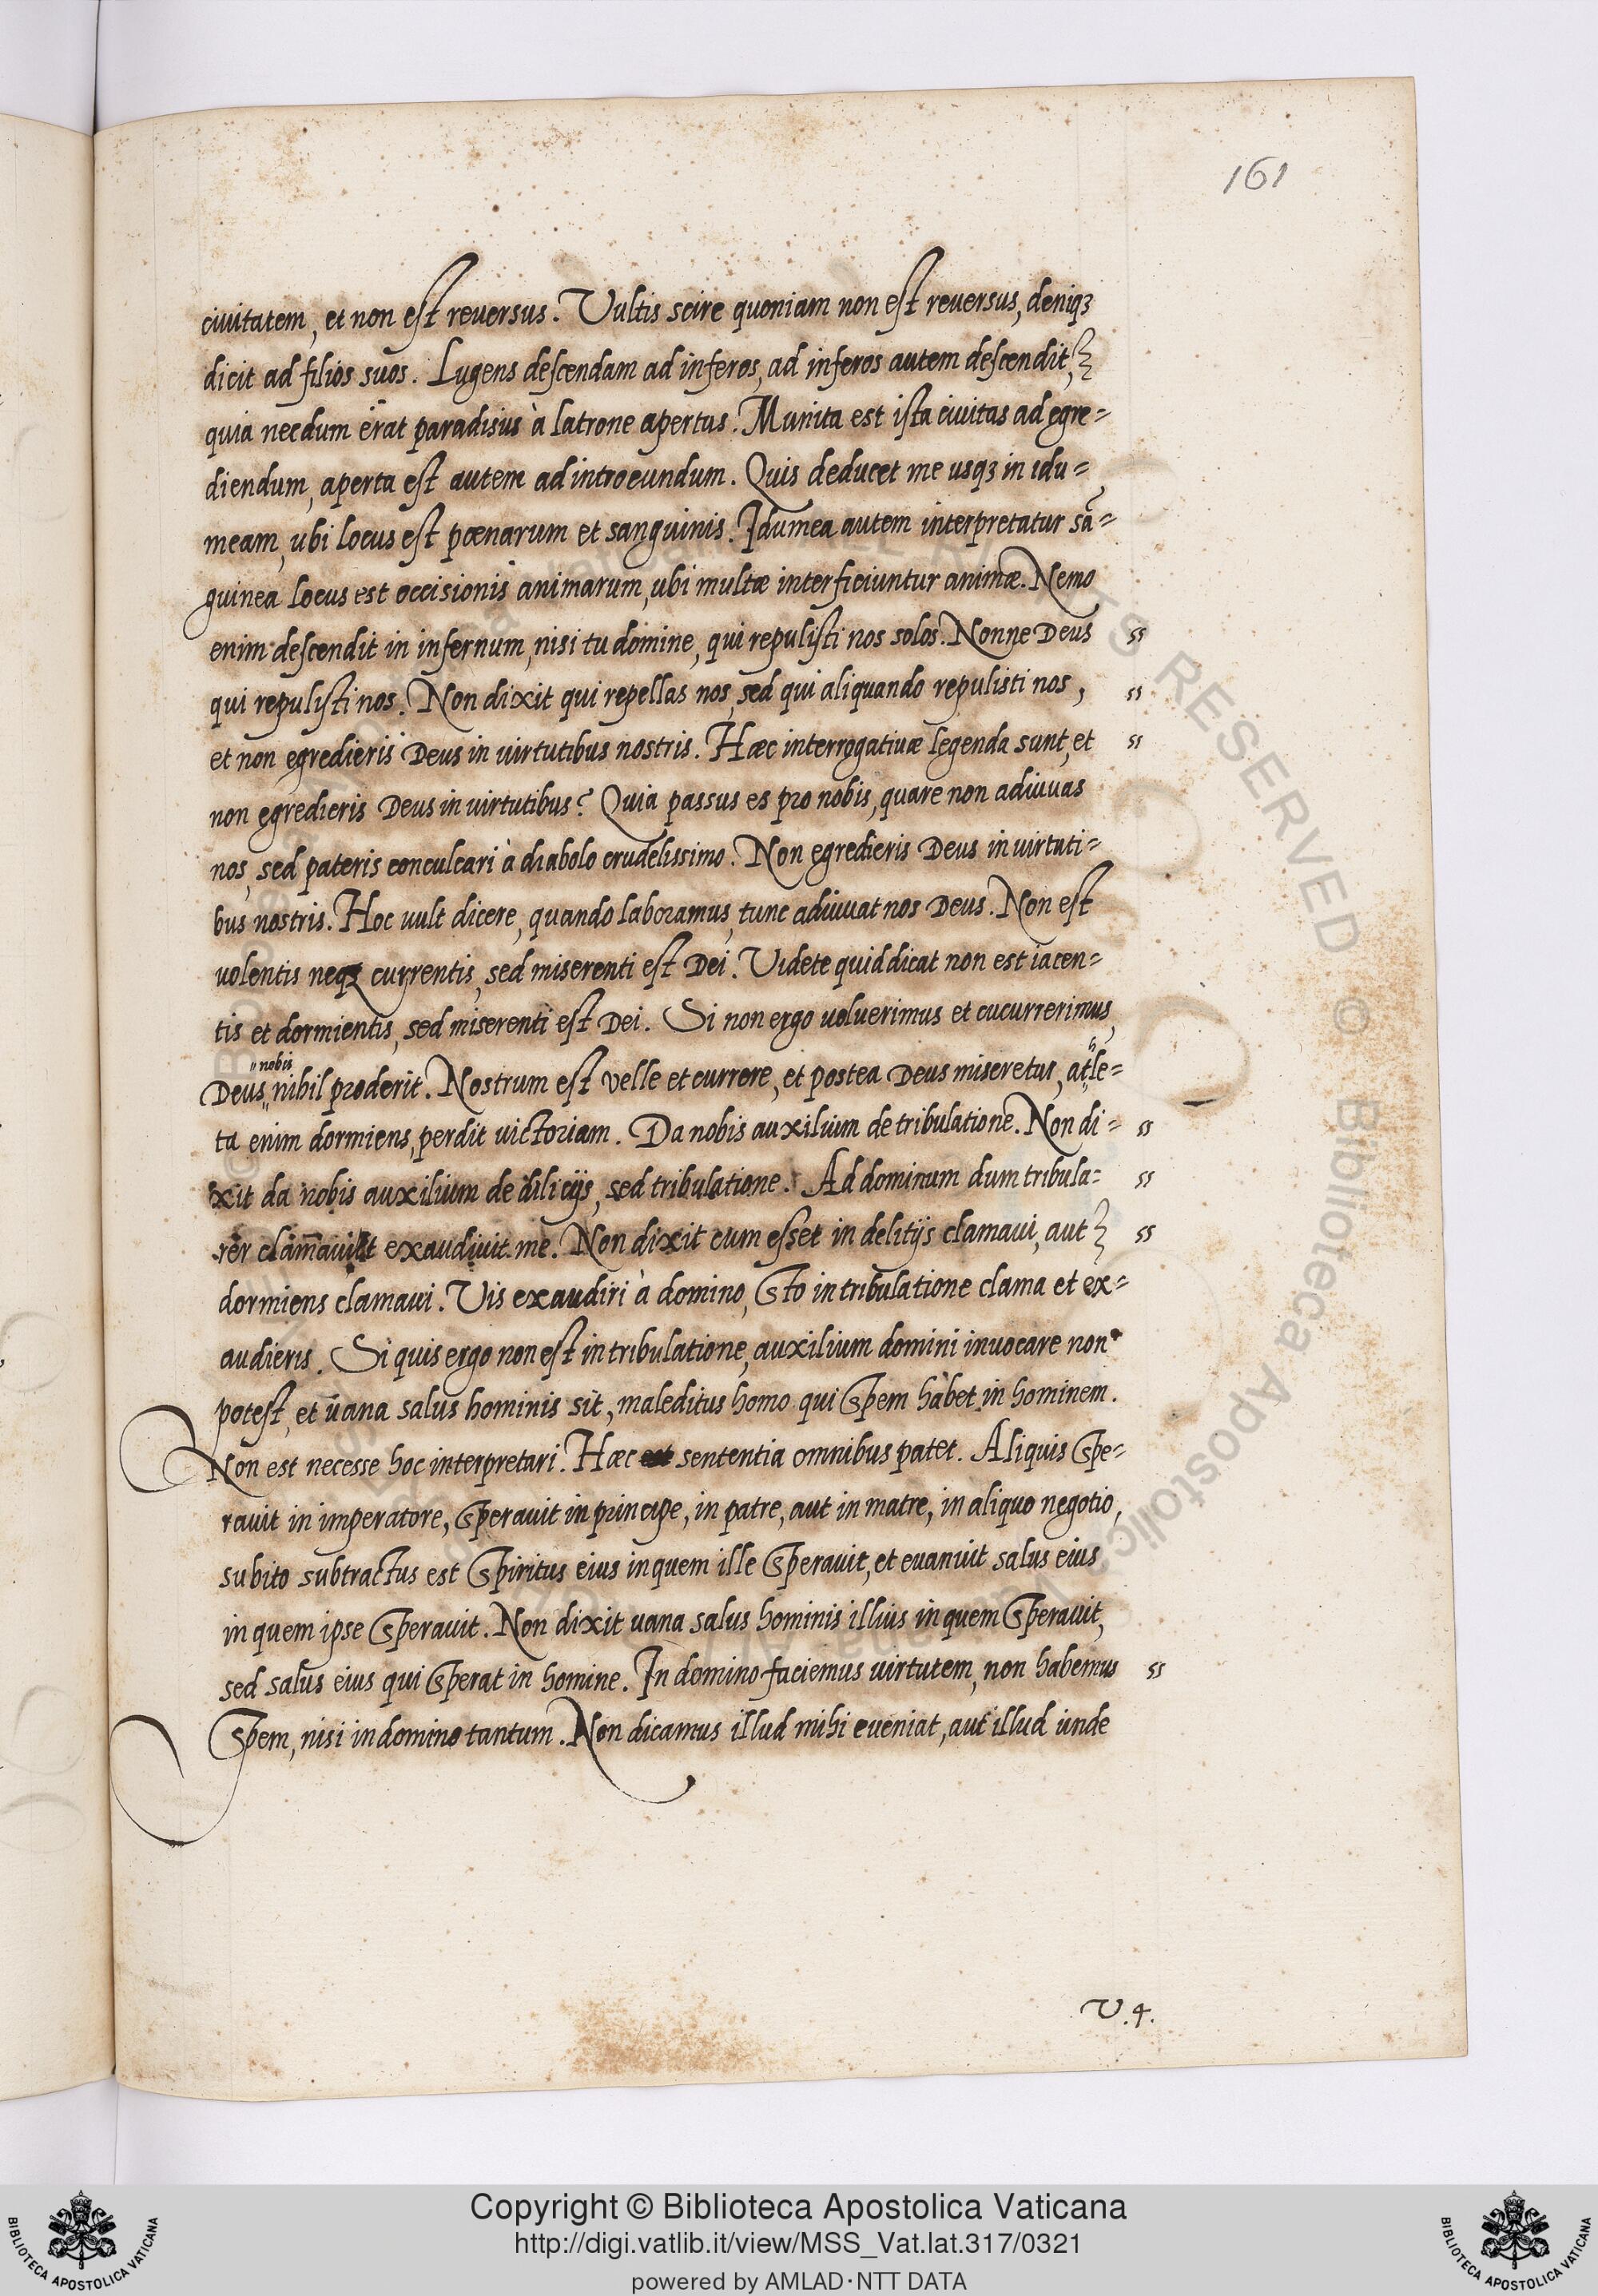 161
ciuitatem, et non est reuersus. Vultis scire quoniam non est reuersus, deniqꝫ
dicit ad filios suos. Lugens descendam ad inferos, ad inferos autem descendit,
quia necdum erat paradisus à latrone apertus. Munita est ista ciuitas ad egre=
diendum, aperta est autem ad introeundum. Quis deducet me usqꝫ in idu=
meam, ubi locus est pœnarum et sanguinis. Idumea autem interpretatur sã=
guinea locus est occisionis animarum, ubi multæ interficiuntur animæ. Nemo
enim descendit in infernum, nisi tu domine, qui repulisti nos solos. Nonne Deus ss
qui repulisti nos. Non dixit qui repellas nos, sed qui aliquando repulisti nos, ss
et non egredieris Deus in uirtutibus nostris. Hæc interrogatiuæ legenda sunt, et ss
non egredieris Deus in uirtutibus? Quia passus es pro nobis, quare non adiuuas
nos, sed pateris conculcari à diabolo crudelissimo. Non egredieris Deus in uirtuti=
bus nostris. Hoc uult dicere, quando laboramus, tunc adiuuat nos Deus. Non est
uolentis neqꝫ currentis, sed miserenti est Dei. Videte quid dicat non est iacen=
tis et dormientis, sed miserenti est Dei. Si non ergo uoluerimus et cucurrerimus,
nobis
Deus nihil proderit. Nostrum est velle et currere, et postea Deus miseretur, atle=
h
ta enim dormiens, perdit uictoriam. Da nobis auxilium de tribulatione. Non di= ss
xit da nobis auxilium de dilicijs, sed tribulatione. Ad dominum dum tribula= ss
rer clamaui et exaudiuit me. Non dixit cum esset in delitijs clamaui, aut ss
dormiens clamaui. Vis exaudiri à domino, sto in tribulatione clama et ex=
audieris. Si quis ergo non est in tribulatione, auxilium domini inuocare non
potest, et uana salus hominis sit, maleditus homo qui spem habet in hominem.
Non est necesse hoc interpretari. Hæc sententia omnibus patet. Aliquis spe=
rauit in imperatore, sperauit in principe, in patre, aut in matre, in aliquo negotio,
subito subtractus est spiritus eius in quem ille sperauit, et euanuit salus eius
in quem ipse sperauit. Non dixit uana salus hominis illius in quem sperauit,
sed salus eius qui sperat in homine. In domino faciemus uirtutem, non habemus ss
spem, nisi in domino tantum. Non dicamus illud mihi eueniat, aut illud unde
V.4.
RIGHTS RESERVED © Biblioteca Apostolica
Copyright © Biblioteca Apostolica Vaticana
http://digi.vatlib.it/view/MSS_Vat.lat.317/0321
powered by AMLAD·NTT DATA
BIBLIOTECA APOSTOLICA VATICANA
BIBLIOTECA APOSTOLICA VATICANA